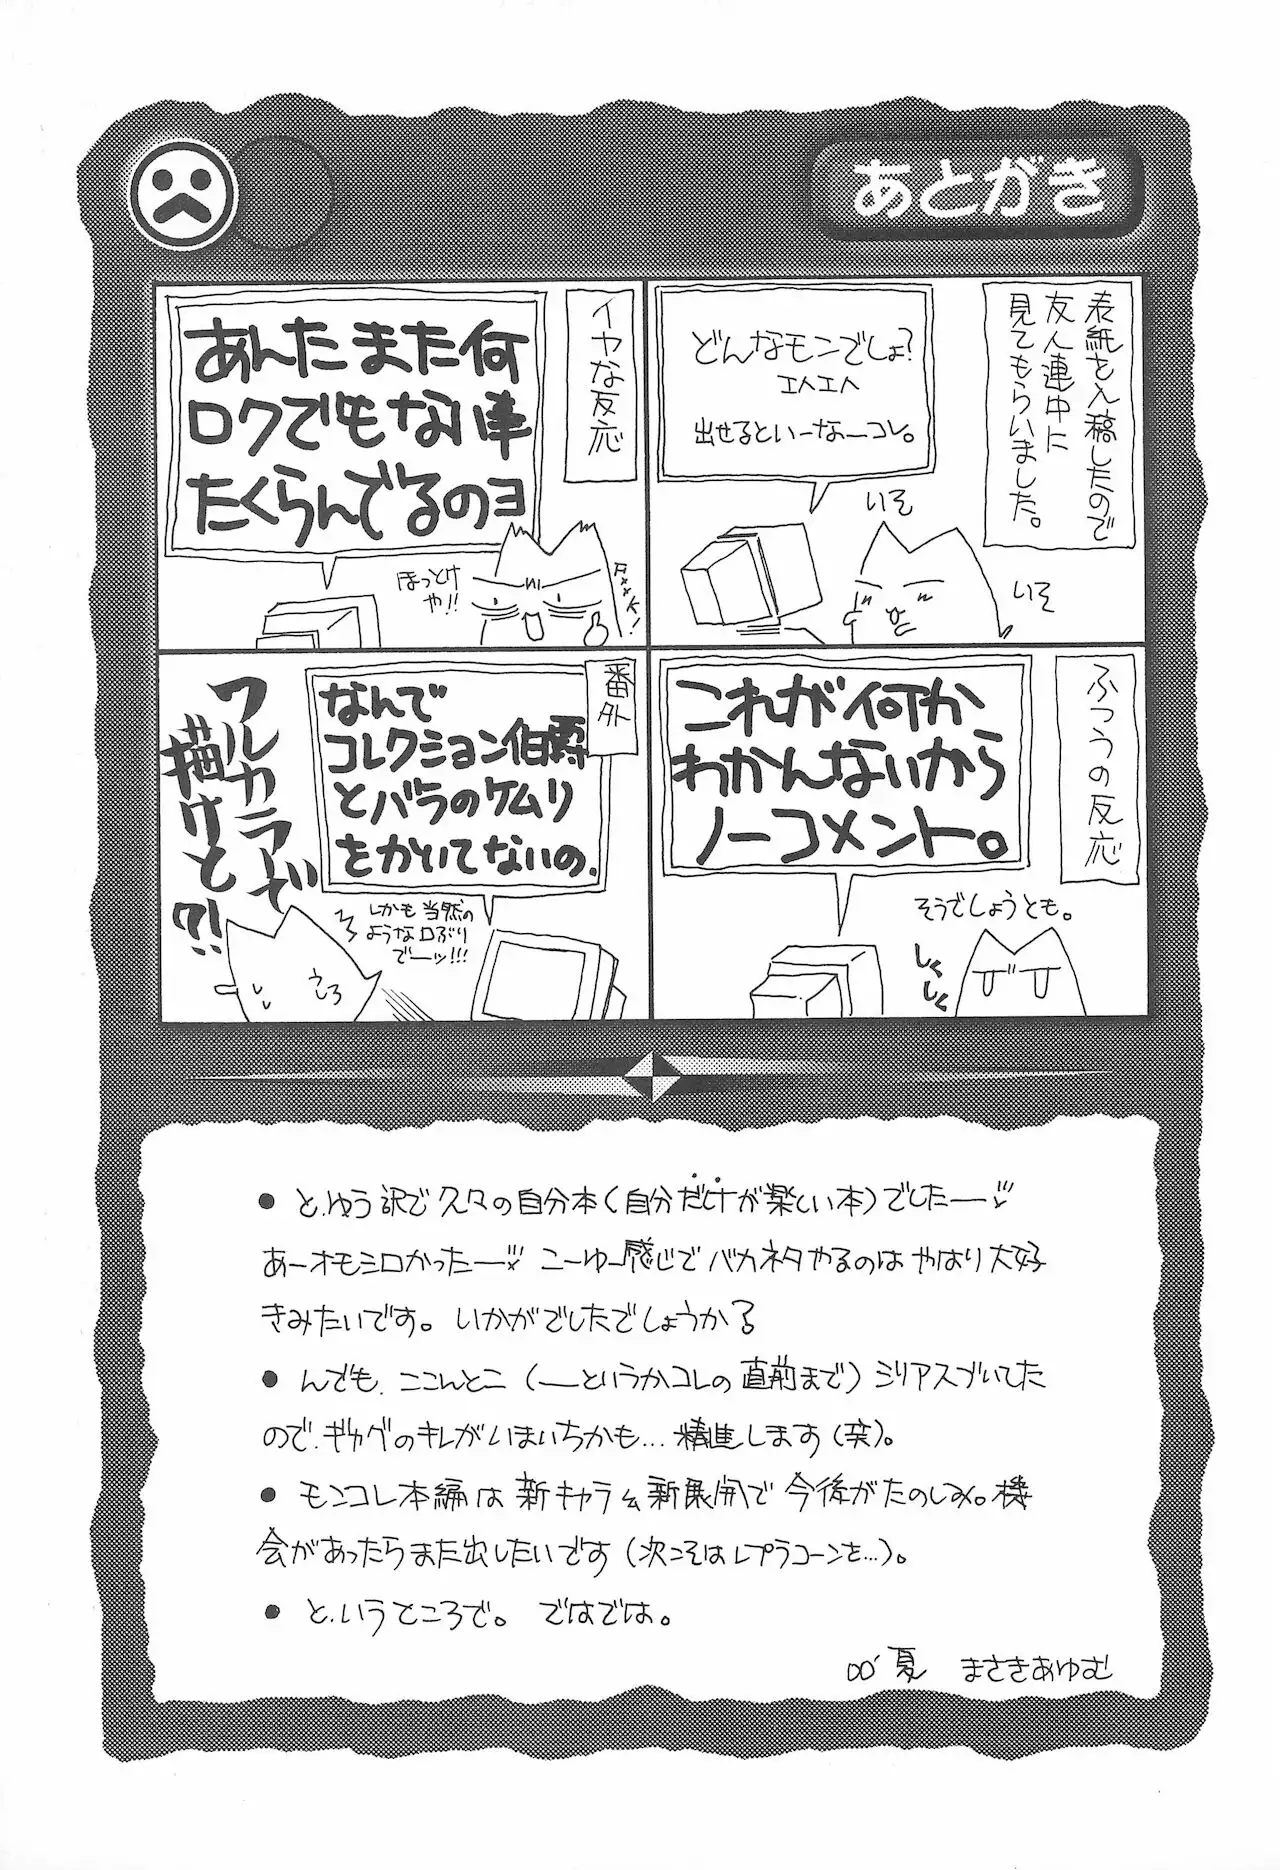 あとがき
表紙を入稿したので
友人連中に
見てもらいました。
どんなモンでしょ?
エヘエヘ
出せるといーなーコレ。
いそ
いそ
イヤな反応
あんたまた何
ロクでもない事
たくらんでるのヨ
ほっとけ
や!!
ふつうの反応
これが何か
わかんないから
ノーコメント。
そうでしょうとも。
しくしく
番外
なんで
コレクション伯爵
とバラのケムリ
をかいてないの.
しかも当然の
ような口ぶり
でーッ!!!
フルカラーで
描けと?!
● と、ゆう訳で久々の自分本(自分だけが楽しい本)でしたー
あーオモシロかったー こーゆー感じでバカネタやるのはやはり大好
きみたいです。いかがでしたでしょうか?
● んでも、ここんとこ(ーというかコレの直前まで)シリアスづいてた
ので、ギャグのキレがいまいちかも…精進します(笑)。
● モンコレ本編は新キャラ&新展開で今後がたのしみ。機
会があったらまた出したいです(次こそはレプラコーンを…)。
● と、いうところで。ではでは。
00'夏 まさきあゆむ